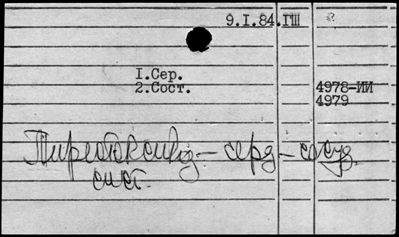 9.I.84.ГШ
I.Сер.
2.Сост. 4978-ИИ
4979
серд-сосуд.
сист.